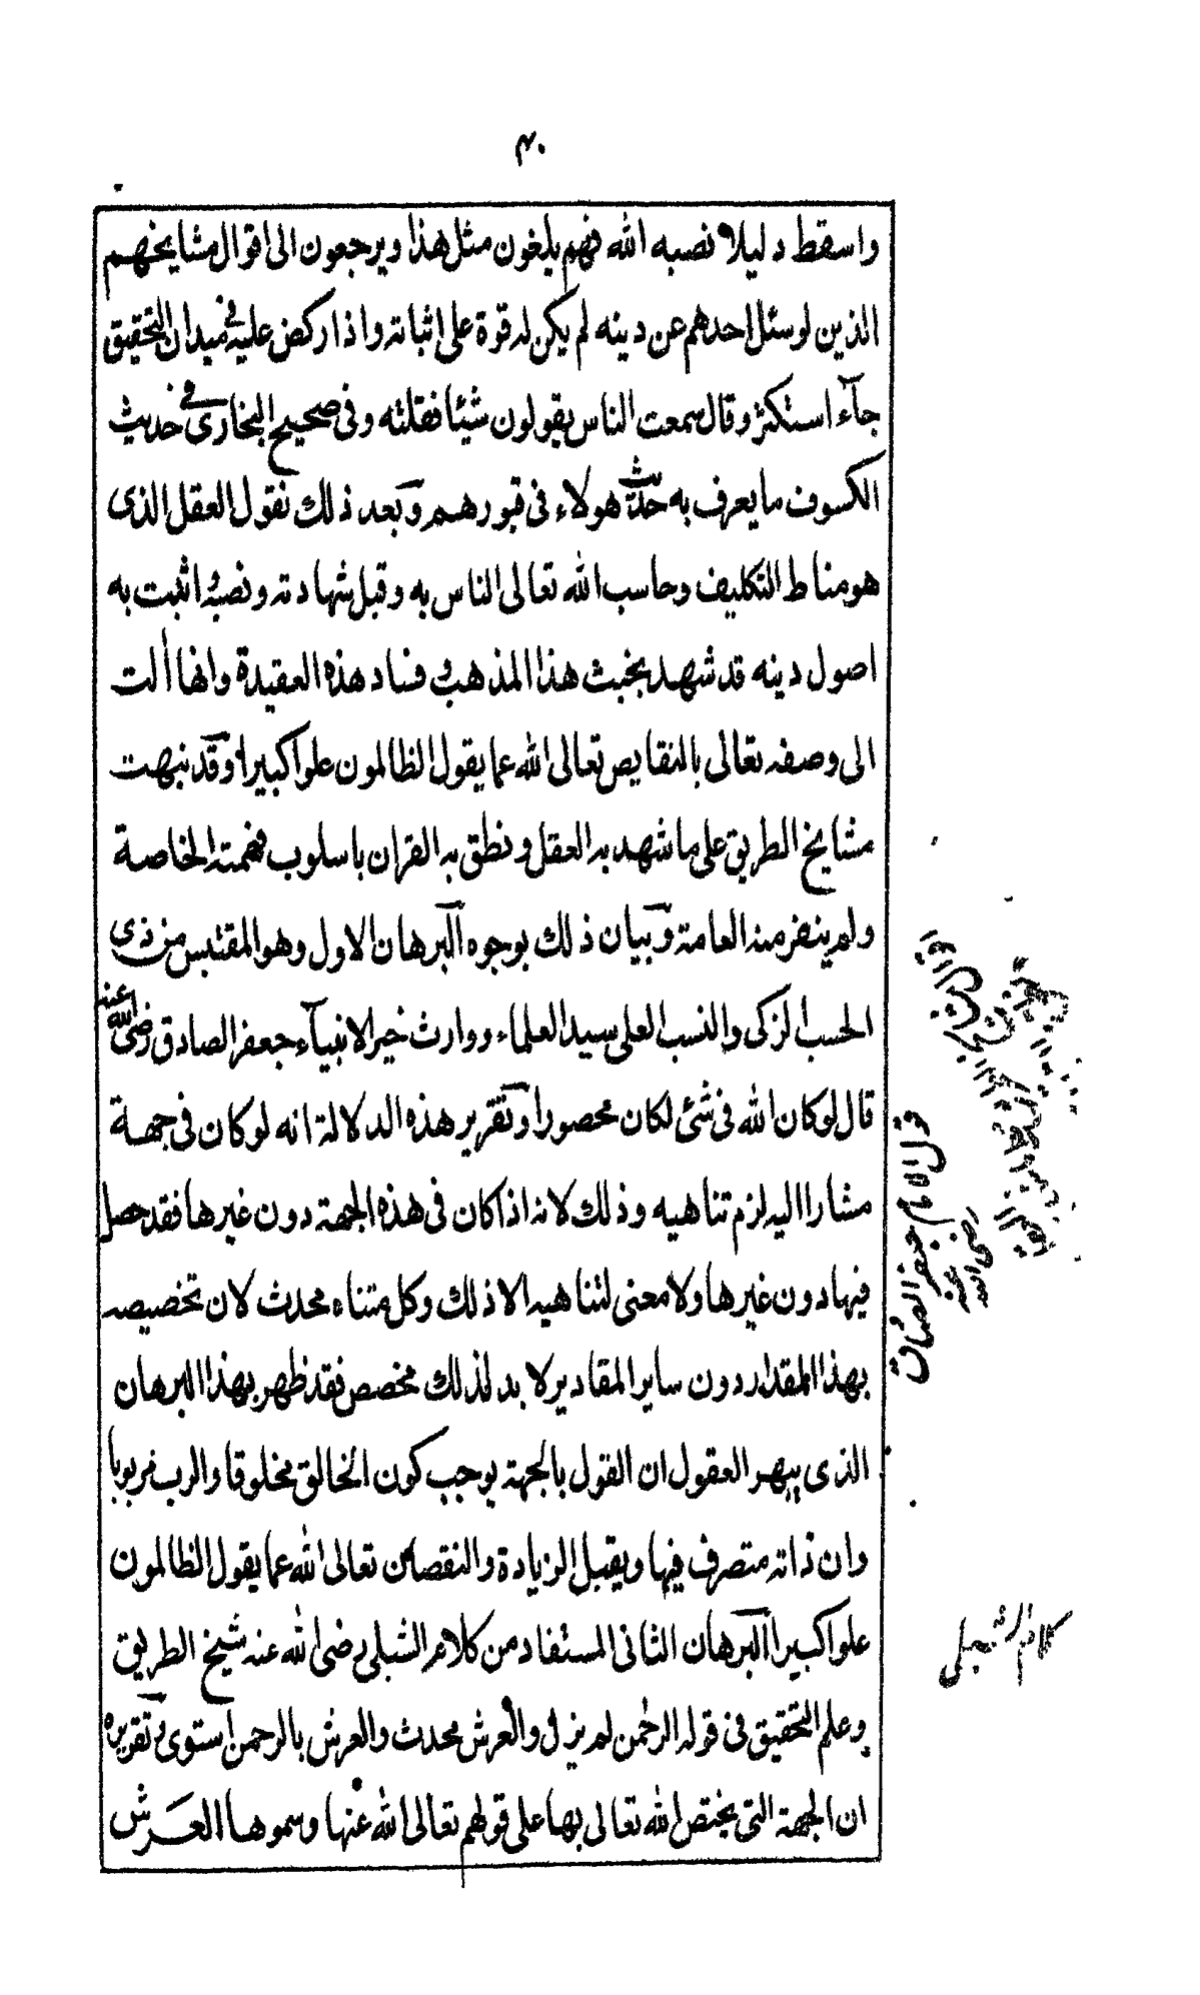 ٤٠
واسقط دليلا نصبه الله فهم يلغون مثل هذا ويرجعون الى اقوال مشايخهم
الذين لوسئل احدهم عن دينه لم يكن له قوة على اثباته واذا ركض عليه فى ميدان التحقيق
جآء استكثر وقال سمعت الناس يقولون شيئا فقلته وفى صحيح البخارى فى حديث
الكسوف ما يعرف به حديث هولاء فى قبورهم وبعد ذلك نقول العقل الذى
هو مناط التكليف وحاسب الله تعالى الناس به وقبل شهادته ونصبه اثبت به
اصول دينه قد شهد بخبث هذا المذهب وفساد هذه العقيدة وانها ألت
الى وصفه تعالى بالنقايص تعالى الله عما يقول الظالمون علوا كبيرا وقد نبهت
مشايخ الطريق على ما شهد به العقل ونطق به القران باسلوب فهمته الخاصة
ولم ينفر منه العامة وبيان ذلك بوجوه البرهان الاول وهو المقتبس من ذى
الحسب الزكى والنسب العلى سيد العلماء ووارث خير الانبيآء جعفر الصادق رضى الله عنه
قال لوكان الله فى شئ لكان محصورا وتقرير هذه الدلالة انه لو كان فى جهة
مشارا اليه لزم تناهيه وذلك لانه اذا كان فى هذه الجهة دون غيرها فقد حصل
فيها دون غيرها ولا معنى لتناهيه الا ذلك وكل متناه محدث لان تخصيصه
بهذا المقدار دون ساير المقادير لا بد لذلك مخصص فقد ظهر بهذا البرهان
الذى يبهر العقول ان القول بالجهة يوجب كون الخالق مخلوقا والرب مربوبا
وان ذاته متصرف فيها ويقبل الزيادة والنقصان تعالى الله عما يقول الظالمون
علوا كبيرا البرهان الثانى المستفاد من كلام الشبلى رضى الله عنه شيخ الطريق
وعلم التحقيق فى قوله الرحمن لم يزل والعرش محدث والعرش بالرحمن استوى وتقريره
ان الجهة التى يختص الله تعالى بها على قولهم تعالى الله عنها وسموها العرش
قول الامام جعفر الصادق
رضى الله عنه
كلام الشبلى